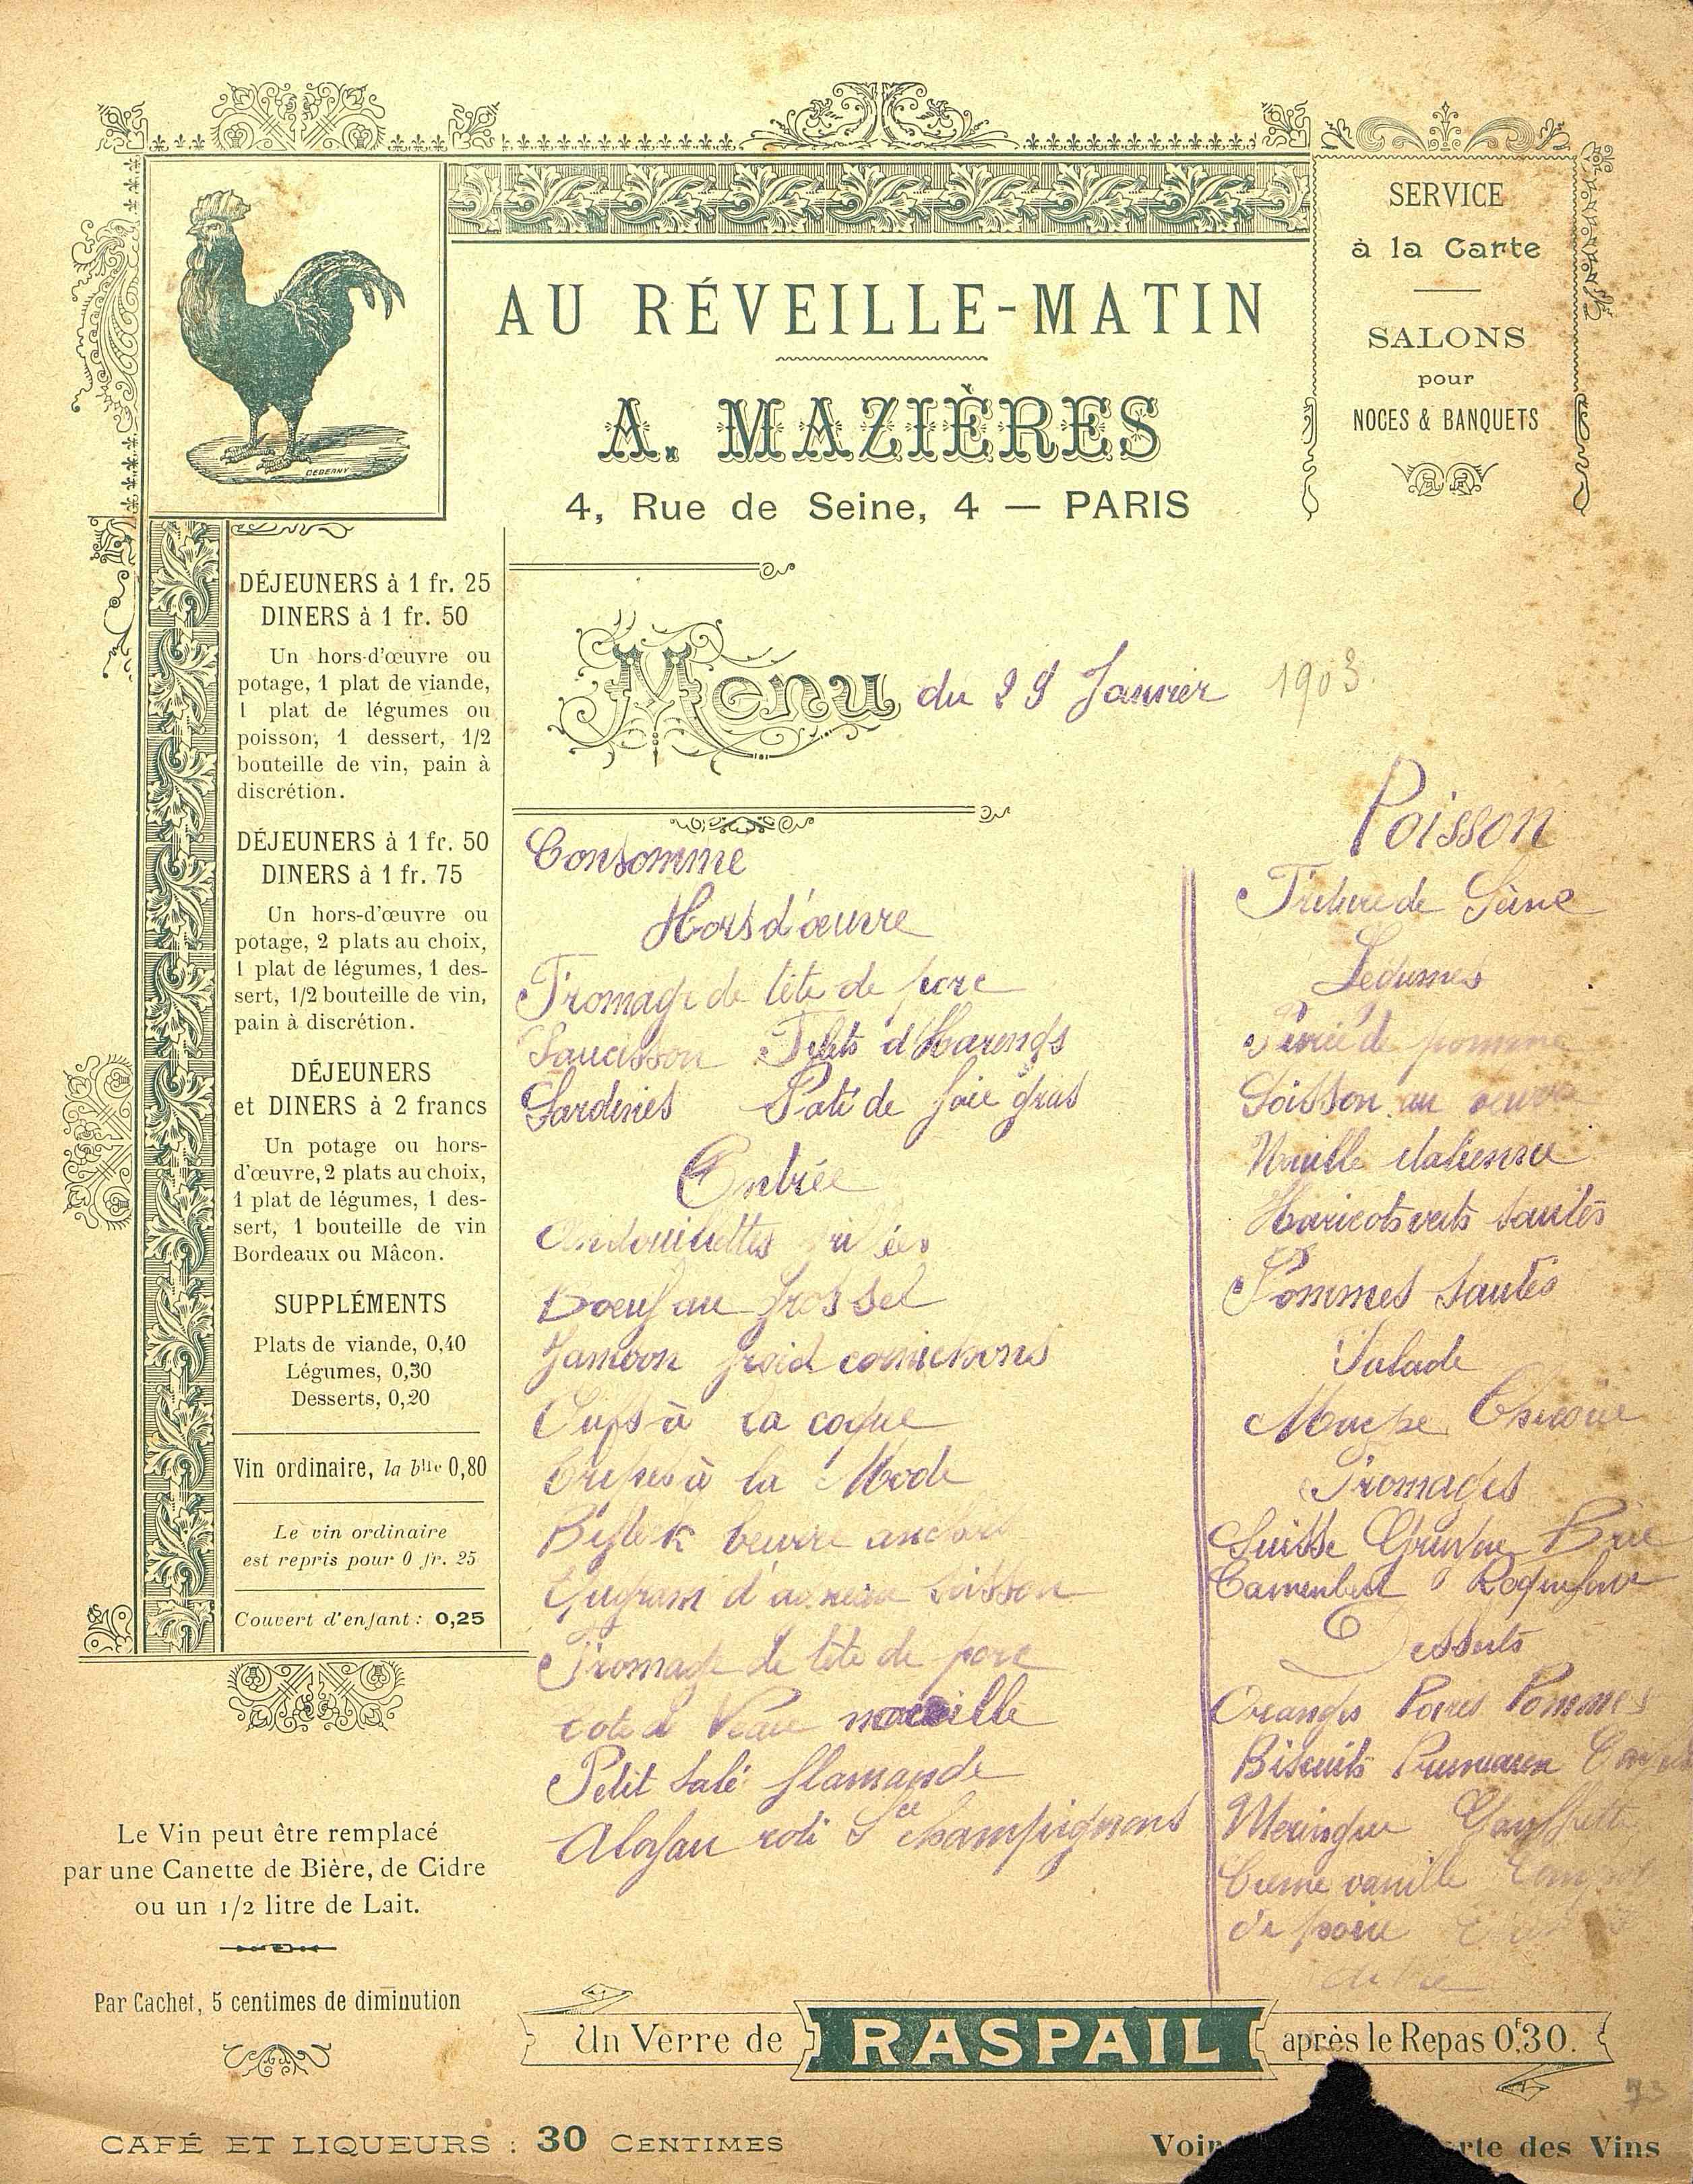 SERVICE
à la Carte
SALONS
pour
NOCES & BANQUETS
AU RÉVEILLE-MATIN
A. MAZIÈRES
4, Rue de Seine, 4 — PARIS
DEBERNY
DÉJEUNERS à 1 fr. 25
DINERS à 1 fr. 50
Un hors-d'œuvre ou
potage, 1 plat de viande,
1 plat de légumes ou
poisson, 1 dessert, 1/2
bouteille de vin, pain à
discrétion.
DÉJEUNERS à 1 fr. 50
DINERS à 1 fr. 75
Un hors-d'œuvre ou
potage, 2 plats au choix,
1 plat de légumes, 1 des-
sert, 1/2 bouteille de vin,
pain à discrétion.
DÉJEUNERS
et DINERS à 2 francs
Un potage ou hors-
d'œuvre, 2 plats au choix,
1 plat de légumes, 1 des-
sert, 1 bouteille de vin
Bordeaux ou Mâcon.
SUPPLÉMENTS
Plats de viande, 0,40
Légumes, 0,30
Desserts, 0,20
Vin ordinaire, la blle 0,80
Le vin ordinaire
est repris pour 0 fr. 25
Couvert d'enfant : 0,25
Le Vin peut être remplacé
par une Canette de Bière, de Cidre
ou un 1/2 litre de Lait.
Par Cachet, 5 centimes de diminution
Menu du 29 Janvier 1903.
Consomme
Hors d'œuvre
Fromage de tête de porc
Saucisson Filets d'Harengs
Sardines Paté de foie gras
Entrée
Andouillettes
Bœuf au gros sel
Jambon froid cornichons
Oeufs à la coque
Tripes à la Mode
Bifteck beurre anchois
Fromage de tête de porc
Cote de Veau
Petit salé flamande
Aloyau roti Sce champignons
Poisson
Friture de Seine
Légumes
Purée de pomme
Soisson au
Nouille italienne
Haricots verts sautés
Pommes sautés
Salade
Mache Chicorée
Fromages
Suisse Gruyere Brie
Camembert Roquefort
Desserts
Oranges Poires Pommes
Biscuits Pruneaux
Meringue Gauffrette
Creme vanille
de poire
Un Verre de RASPAIL après le Repas 0f30.
73
CAFÉ ET LIQUEURS : 30 CENTIMES
Voir
rte des Vins